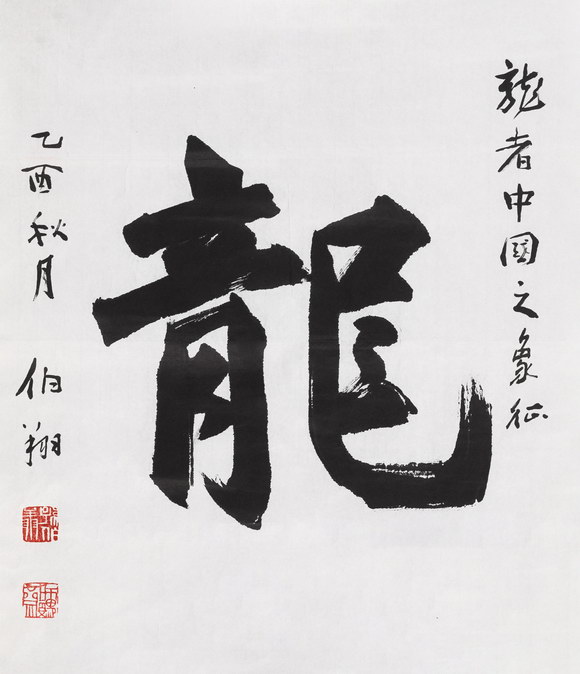 龍者中國之象征
龍
乙酉秋月
伯翔